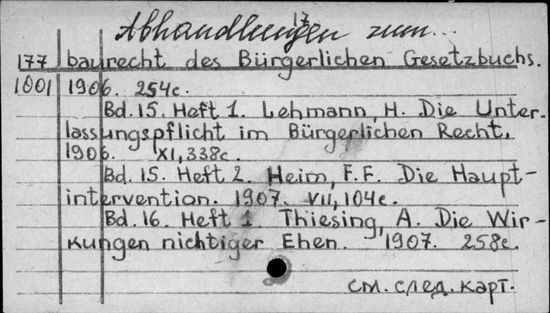 Abhandlungen zum...
17
177 baurecht des Bürgerlichen Gesetzbuchs.
1001 1906. 254c.
Bd. 15. Heft 1. Lehmann, H. Die Unter-
lassungspflicht im Bürgerlichen Recht.
1906. XI, 338c.
Bd. 15. Heft 2. Heim, F.F. Die Haupt-
intervention. 1907. VII, 104c.
Bd. 16. Heft 1. Thiesing, A. Die Wir-
kungen nichtiger Ehen. 1907. 258c.
см. след. карт.